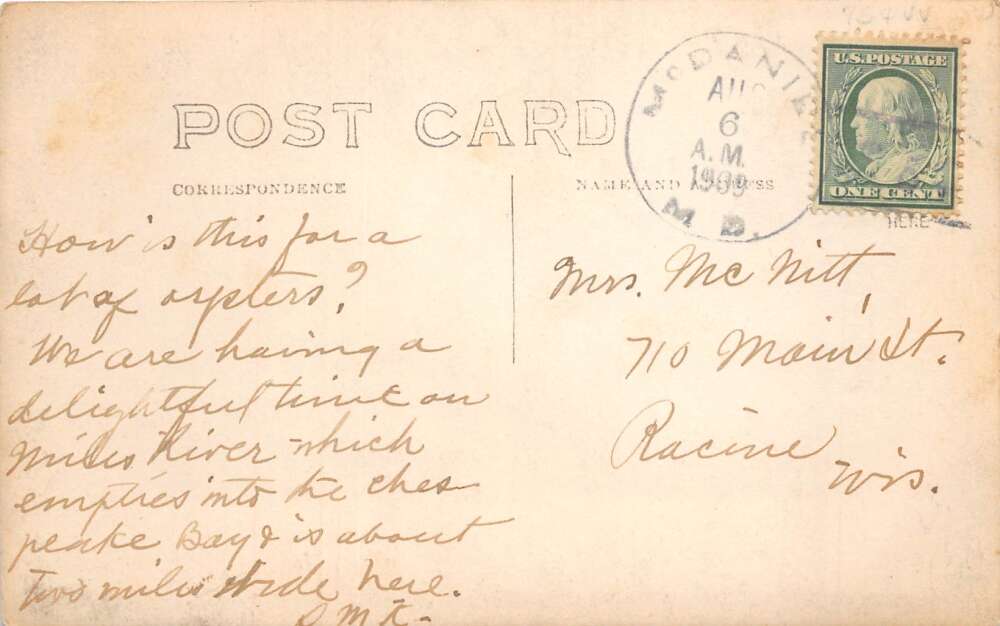 McDANIEL
AUG
6
A.M.
1909
MD.
U.S.POSTAGE
ONE CENT
POST CARD
CORRESPONDENCE
NAME AND ADDRESS
HERE
How is this for a
lot of oysters?
We are having a
delightful time on
Miles River which
empties into the Ches
peake Bay & is about
two miles wide here.
Mrs. McNitt,
710 Main St.
Racine
Wis.